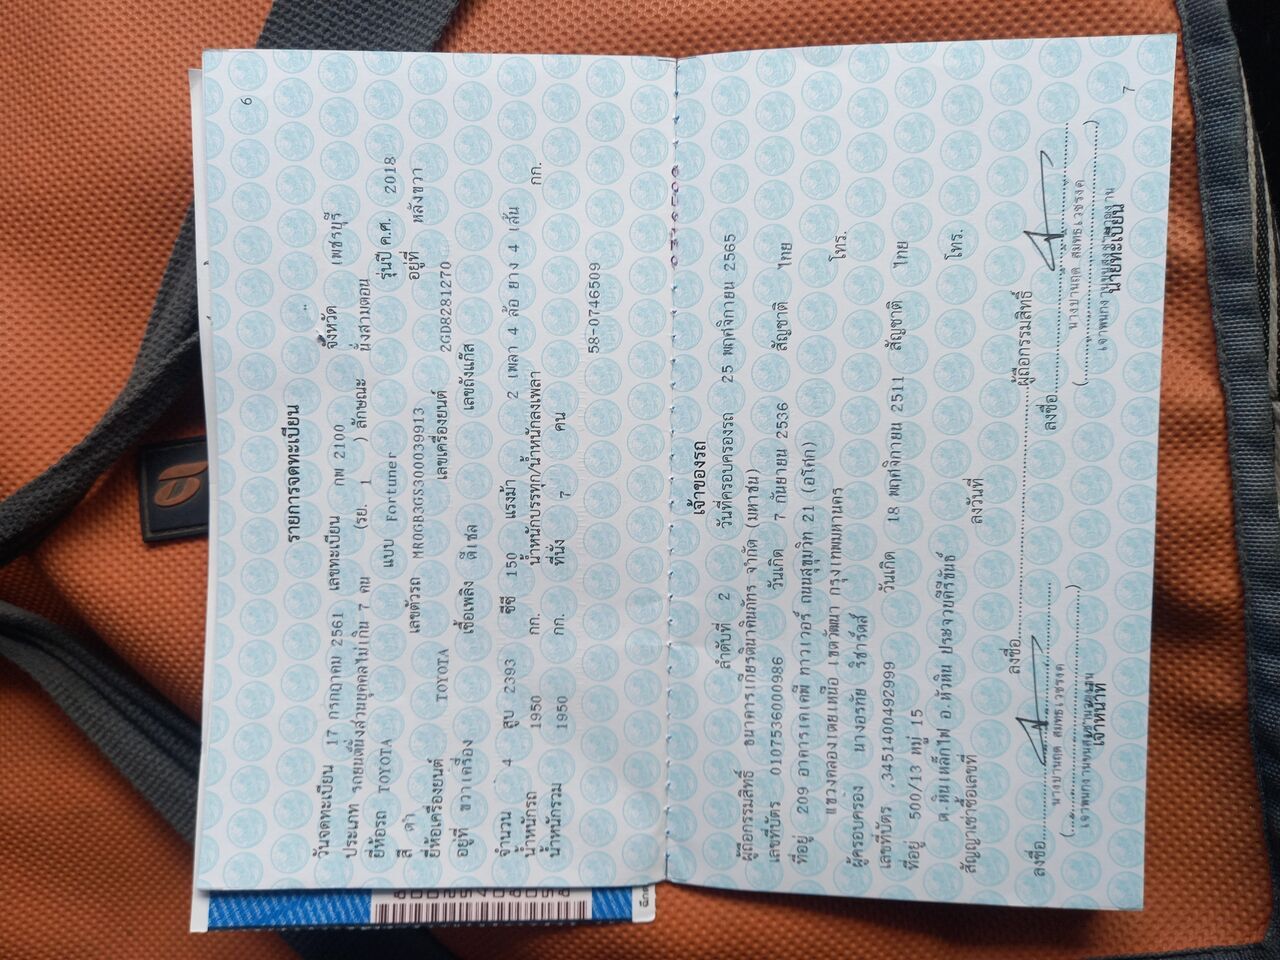 6
รายการจดทะเบียน
วันจดทะเบียน 17 กรกฎาคม 2561 เลขทะเบียน กพ 2100 จังหวัด เพชรบุรี
ประเภท รถยนต์นั่งส่วนบุคคลไม่เกิน 7 คน (รย. 1 ) ลักษณะ นั่งสามตอน
ยี่ห้อรถ TOYOTA แบบ Fortuner รุ่นปี ค.ศ. 2018
สี ดำ เลขตัวรถ MR0GB3GS300039913 อยู่ที่ หลังขวา
ยี่ห้อเครื่องยนต์ TOYOTA เลขเครื่องยนต์ 2GD8281270
อยู่ที่ ขวาเครื่อง เชื้อเพลิง ดีเซล เลขถังแก๊ส
จำนวน 4 สูบ 2393 ซีซี 150 แรงม้า 2 เพลา 4 ล้อ ยาง 4 เส้น
น้ำหนักรถ 1950 กก. น้ำหนักบรรทุก/น้ำหนักลงเพลา กก.
น้ำหนักรวม 1950 กก. ที่นั่ง 7 คน
58-0746509
เจ้าของรถ
ลำดับที่ 2 วันที่ครอบครองรถ 25 พฤศจิกายน 2565
ผู้ถือกรรมสิทธิ์ ธนาคารเกียรตินาคินภัทร จำกัด (มหาชน)
เลขที่บัตร 0107536000986 วันเกิด 7 กันยายน 2536 สัญชาติ ไทย
ที่อยู่ 209 อาคารเคเคพี ทาวเวอร์ ถนนสุขุมวิท 21 (อโศก)
แขวงคลองเตยเหนือ เขตวัฒนา กรุงเทพมหานคร โทร.
ผู้ครอบครอง นางอรทัย ริชาร์ดส์
เลขที่บัตร 3451400492999 วันเกิด 18 พฤศจิกายน 2511 สัญชาติ ไทย
ที่อยู่ 500/13 หมู่ 15
ต.หินเหล็กไฟ อ.หัวหิน ประจวบคีรีขันธ์ โทร.
สัญญาเช่าซื้อเลขที่ ลงวันที่
ลงชื่อ ผู้ถือกรรมสิทธิ์
ลงชื่อ ลงชื่อ
เจ้าหน้าที่ นายทะเบียน
7